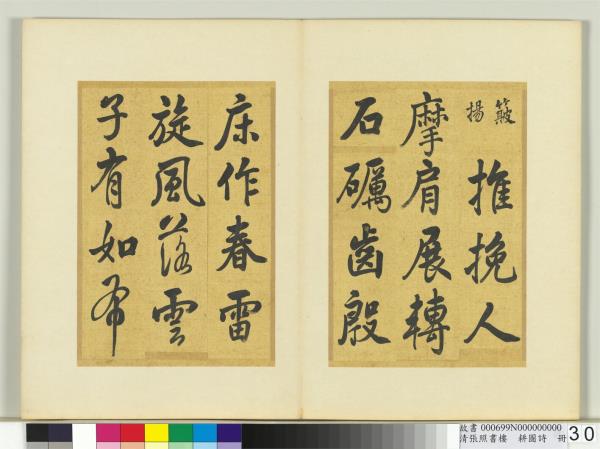 簸揚
推挽人
摩肩展轉
石礪齒殷
床作春雷
旋風落雲
子有如帚
故書 000699N000000000
清張照書樓　耕圖詩　冊
30